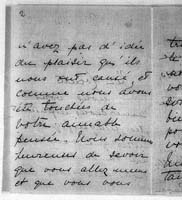 2
n'avez pas d'idée
du plaisir qu'ils
nous ont causé, et
comme nous avons
été touchées de
votre aimable
pensée. Nous sommes
heureuses de savoir
que vous allez mieux
et que vous vous